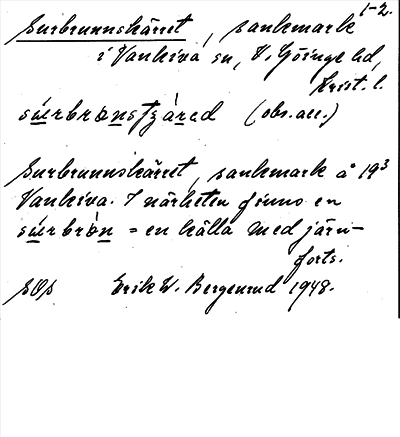 1-2.
Surbrunnskärret, sankmark
i Vankiva sn, V. Göinge hd,
Krist. l.
(obs. acc.)
Surbrunnskärret, sankmark å 19³
Vankiva. I närheten finns en
= en källa med järn-
forts.
Erik W. Bergenrud 1948.